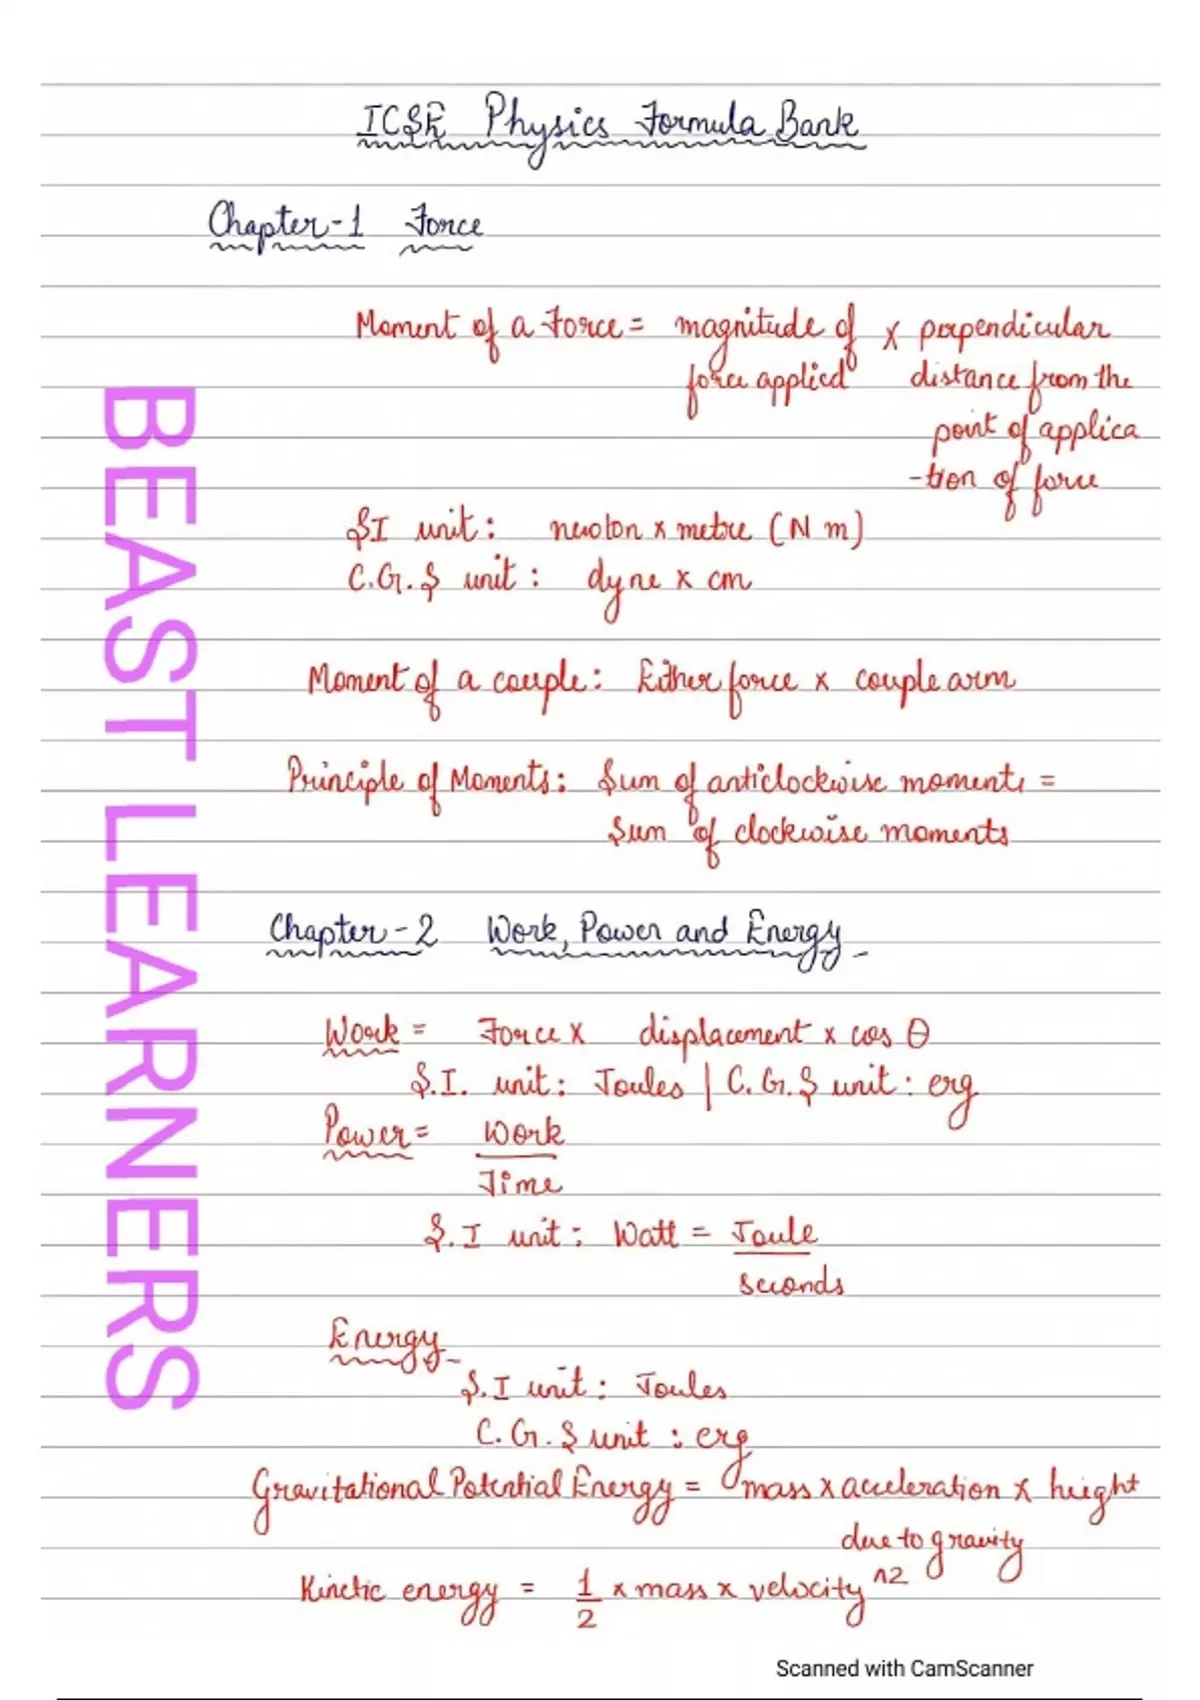 ICSE Physics Formula Bank
Chapter-1 Force
Moment of a Force = magnitude of x perpendicular
force applied distance from the
point of applica
-tion of force
SI unit: newton x metre (N m)
C.G.S unit: dyne x cm
Moment of a couple: Either force x couple arm
Principle of Moments: Sum of anticlockwise moments =
Sum of clockwise moments
Chapter-2 Work, Power and Energy
Work = Force x displacement x cos θ
S.I. unit: Joules | C.G.S unit: erg
Power = Work
Time
S.I unit: Watt = Joule
seconds
Energy
S.I unit: Joules
C.G.S unit: erg
Gravitational Potential Energy = mass x acceleration x height
due to gravity
Kinetic energy = 1/2 x mass x velocity ^2
BEAST LEARNERS
Scanned with CamScanner